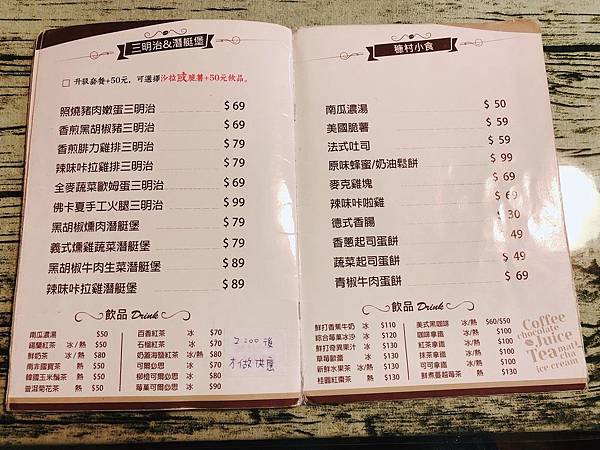 三明治&潛艇堡
□ 升級套餐+50元, 可選擇沙拉或脆薯+50元飲品。
照燒豬肉嫩蛋三明治 $ 69
香煎黑胡椒豬三明治 $ 69
香煎腓力雞排三明治 $ 79
辣味咔拉雞排三明治 $ 79
全麥蔬菜歐姆蛋三明治 $ 69
佛卡夏手工火腿三明治 $ 99
黑胡椒燻肉潛艇堡 $ 79
義式燻雞蔬菜潛艇堡 $ 79
黑胡椒牛肉生菜潛艇堡 $ 89
辣味咔拉雞潛艇堡 $ 89
飲品 Drink
南瓜濃湯 $50
錫蘭紅茶 冰/熱 $50
鮮奶茶 冰/熱 $80
南非國寶茶 熱 $50
韓國玉米鬚茶 熱 $50
普洱菊花茶 熱 $50
百香紅茶 冰 $70
石榴紅茶 冰 $70
奶蓋海鹽紅茶 冰/熱 $80
可爾必思 冰 $70
柳橙可爾必思 冰 $80
莓果可爾必思 冰 $90
2:00後
不做供應
糖村小食
南瓜濃湯 $ 50
美國脆薯 $ 59
法式吐司 $ 59
原味蜂蜜/奶油鬆餅 $ 99
麥克雞塊 $ 69
辣味咔啦雞 $ 69
德式香腸 $ 30
香蔥起司蛋餅 $ 49
蔬菜起司蛋餅 $ 49
青椒牛肉蛋餅 $ 69
飲品 Drink
鮮打香蕉牛奶 冰 $110
綜合莓果冰沙 冰 $120
鮮打奇異果汁 冰 $130
草莓歐蕾 冰 $130
新鮮水果茶 冰/熱 $130
桂圓紅棗茶 熱 $130
美式黑咖啡 冰/熱 $60/$50
咖啡拿鐵 冰/熱 $120
紅茶拿鐵 冰/熱 $130
抹茶拿鐵 冰/熱 $130
可可拿鐵 冰/熱 $130
鮮煮蔓越莓茶 熱 $130
Coffee
chocolate
Juice
Tea mat
cha
ice cream